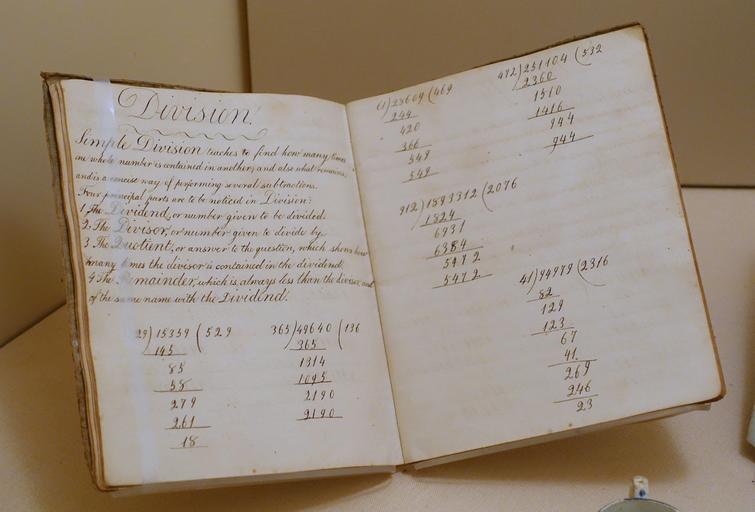 Division.
Simple Division teaches to find how many times
one whole number is contained in another; and also what remains;
and is a concise way of performing several subtractions.
Four principal parts are to be noticed in Division:
1. The Dividend, or number given to be divided.
2. The Divisor, or number given to divide by.
3. The Quotient, or answer to the question, which shows how
many times the divisor is contained in the dividend.
4. The Remainder, which is always less than the divisor, and
of the same name with the Dividend.
29)15359(529
145
85
58
279
261
18
365)49640(136
365
1314
1095
2190
2190
28609(469
244
420
366
549
549
472)251104(532
2360
1510
1416
944
944
912)1893312(2076
1824
6931
6384
5472
5472
41)94979(2316
82
129
123
67
41
269
246
23